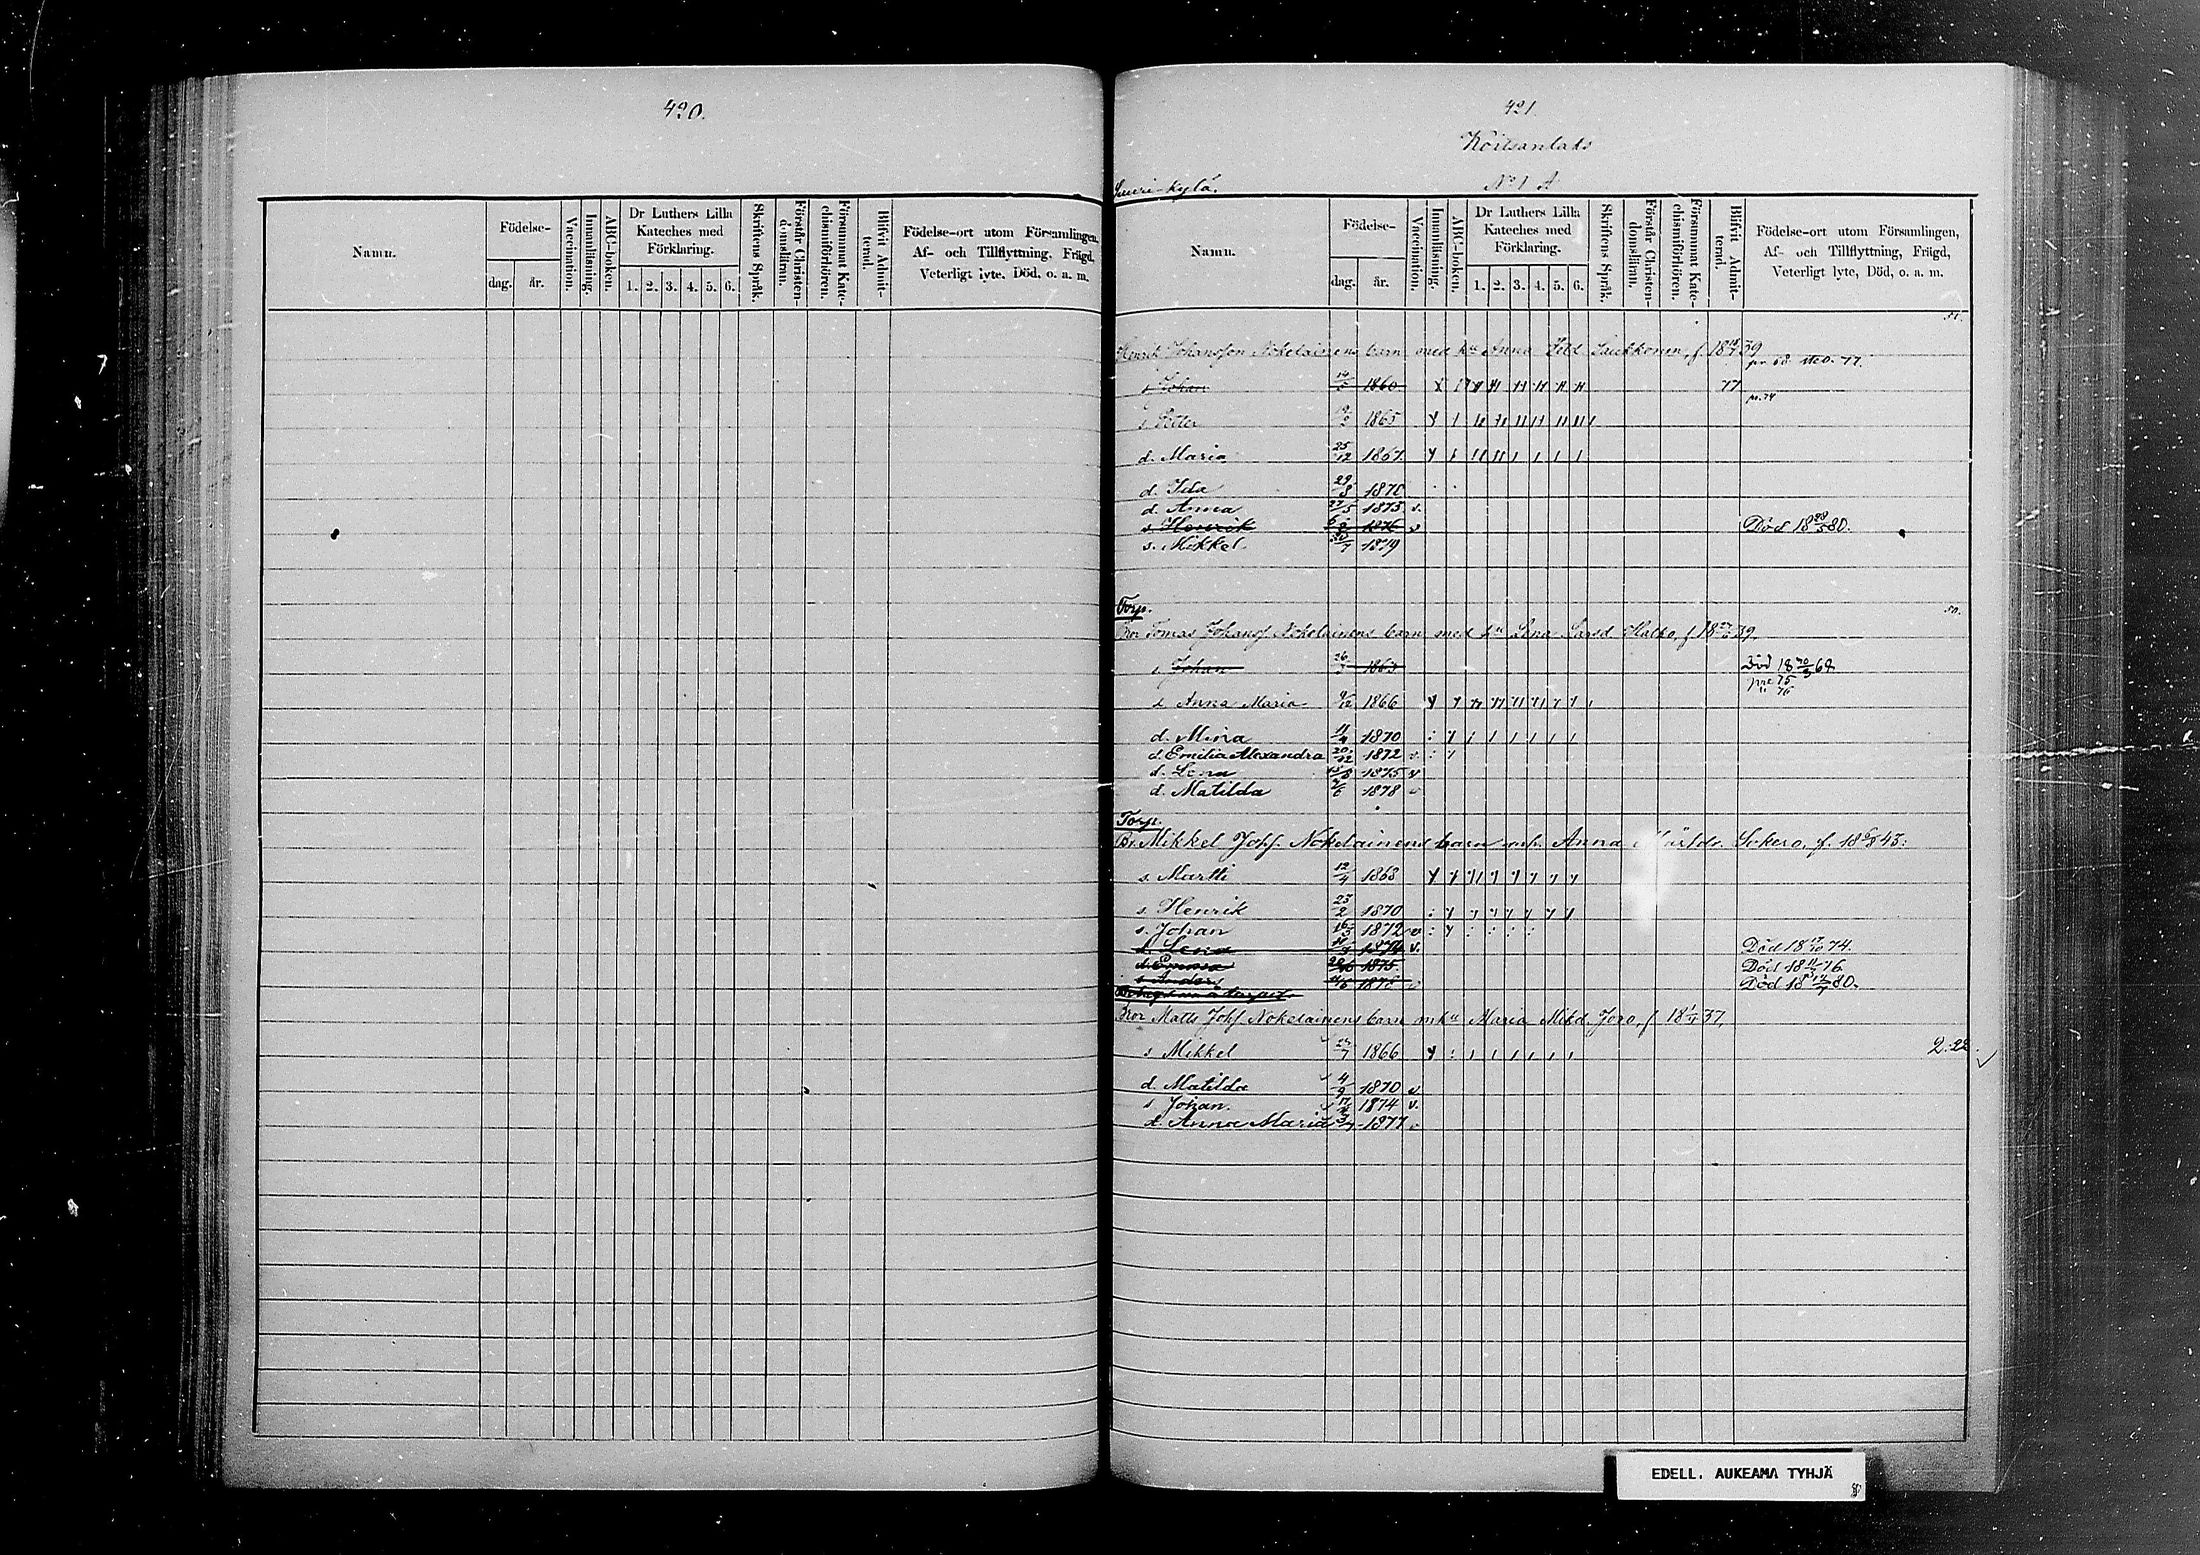 420.
Namn.
Födelse-
dag. år.
Vaccination.
Innanläsning.
ABC-boken.
Dr Luthers Lilla
Kateches med
Förklaring.
1. 2. 3. 4. 5. 6.
Skriftens Språk.
Förstår Christen-
domsläran.
Försammat Kate-
chismiförhören.
Blifvit Admit-
terad.
Födelse-ort utom Församlingen,
Af- och Tillflyttning, Frägd,
Veterligt lyte. Död, o. a. m.
421.
Koitsanlaks
Suuri-kylä. No 1 A
Namn.
Födelse-
dag. år.
Vaccination.
Innanläsning.
ABC-boken.
Dr Luthers Lilla
Kateches med
Förklaring.
1. 2. 3. 4. 5. 6.
Skriftens Språk.
Förstår Christen-
domsläran.
Försammat Kate-
chismiförhören.
Blifvit Admit-
terad.
Födelse-ort utom Församlingen,
Af- och Tillflyttning, Frägd,
Veterligt lyte, Död, o. a. m.
Henrik Johansson Nokelainens barn med hu Anna Saukkonen, f. 18 39
s. Johan 14/5 1860 77
s. Petter 1865
d. Maria 25/12 1867
d. Ida 29/8 1870
d. Anna 27/5 1873 v.
s. Henrik 6/2 1876 v Död 18 28/5 80.
s. Mikkel 30/7 1879
Torp.
Bror Tomas Johans. Nokelainens barn med hu Lena Larsd. Hatko, f. 18 39.
s. Johan 26 1863 Död 18 68
pre 75
" 76
d. Anna Maria 9/12 1866
d. Mina 11/4 1870
d. Emilia Alexandra 20/12 1872 v.
d. Lena 15/8 1875 v
d. Matilda 1878 v
Torp.
Br. Mikkel Johs. Nokelainens barn m.h. Anna Mårtdr. Sokero, f. 18 6/8 43.
s. Martti 12/4 1868
s. Henrik 23/2 1870
s. Johan 16/3 1872 v
d. Lena 1874 v. Död 18 74.
d. Emma 1875 Död 18 76
s. Anders 1878 v Död 18 80.
Bror Matts Johs. Nokelainens barn m hu Maria Mikd. Joro, f. 18 37,
s. Mikkel 1866 2.22.
d. Matilda 4/9 1870 v
s. Johan. 17 1874 v.
d. Anna Maria 1877 v
EDELL. AUKEAMA TYHJÄ